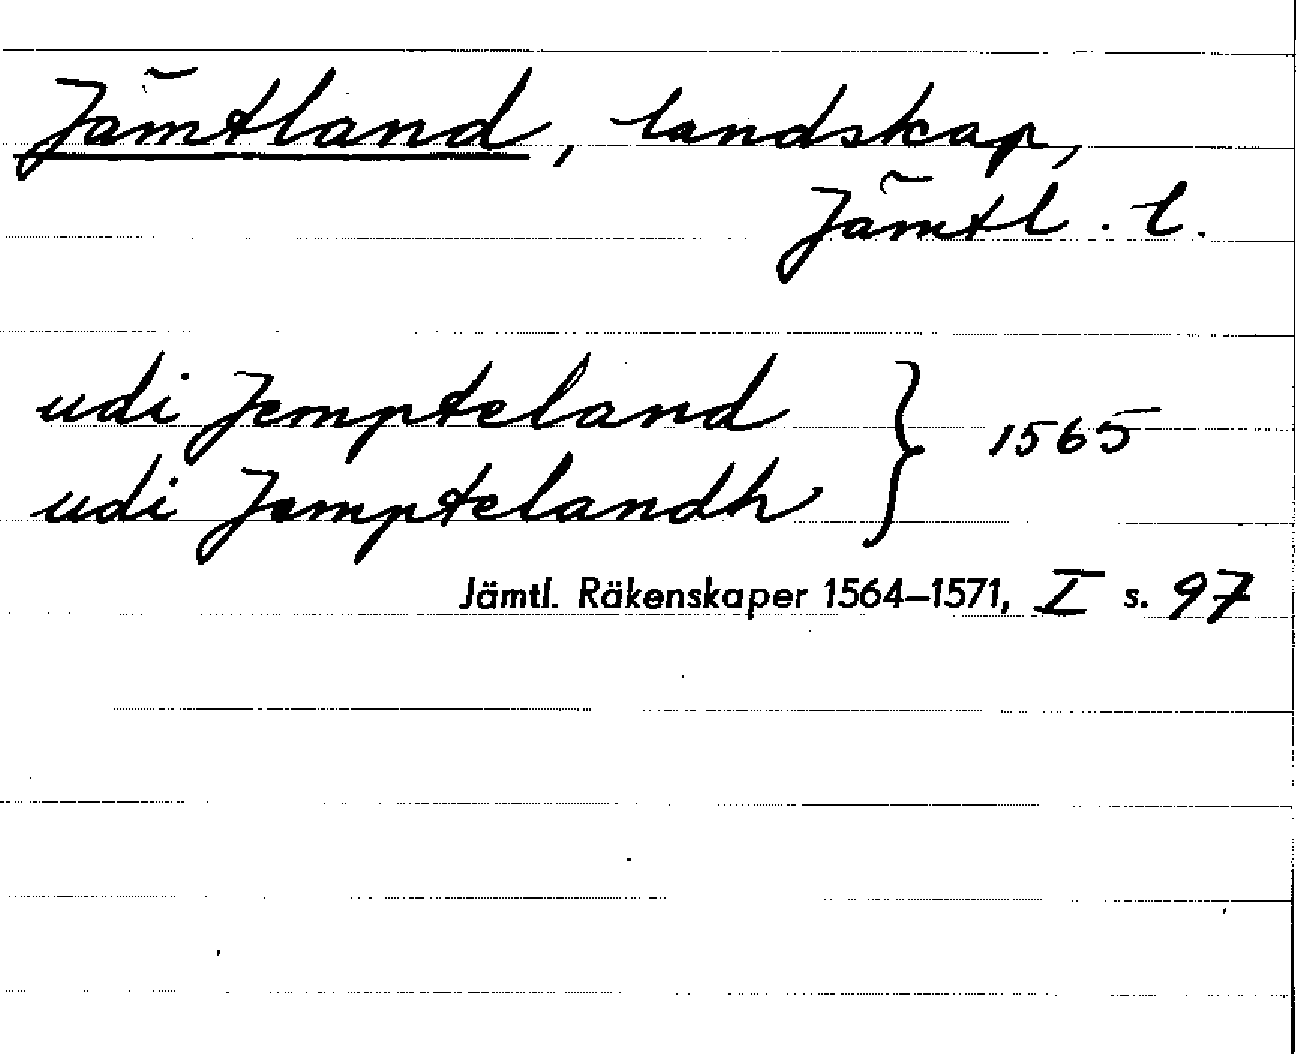 Jämtland, landskap,
Jämtl. l.
udi Jempteland } 1565
udi Jemptelandh
Jämtl. Räkenskaper 1564–1571, I s. 97